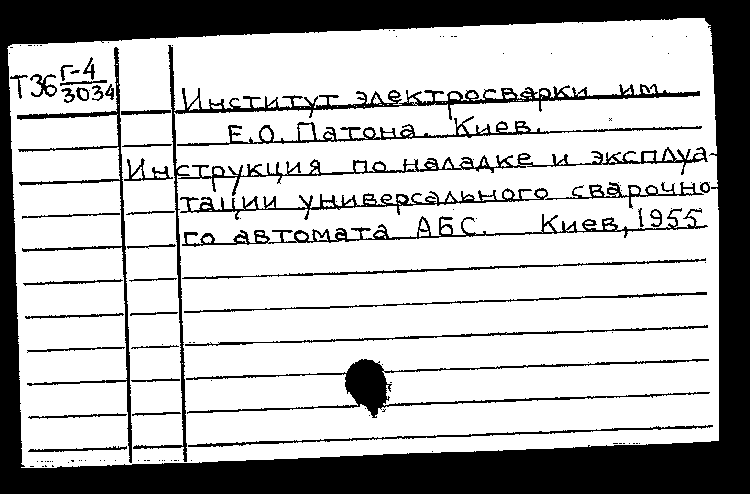 Т36 Г-4
3034
Институт электросварки им.
Е.О. Патона. Киев.
Инструкция по наладке и эксплуа-
тации универсального сварочно-
го автомата АБС. Киев, 1955